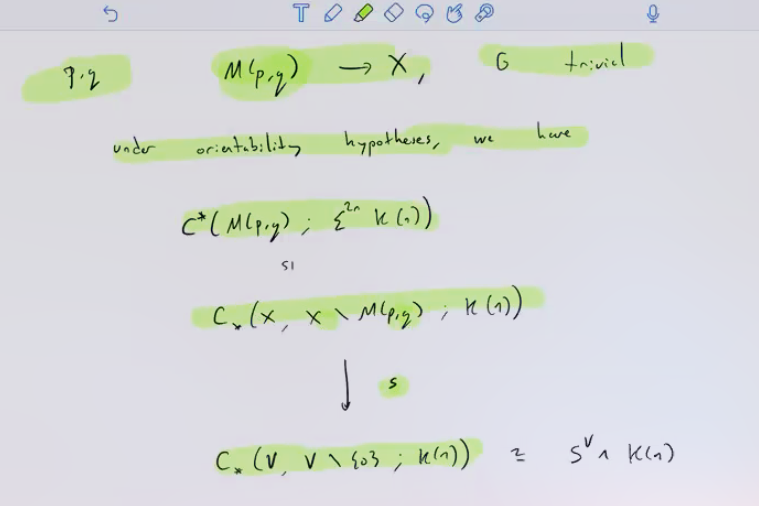 p,q M(p,q) → X, G trivial
under orientability hypotheses, we have
C*(M(p,q) ; Σ²ⁿ K(n))
S|
C_*(X, X \ M(p,q) ; K(n))
↓ s
C_*(V, V \ {0} ; K(n)) ≃ S^V ∧ K(n)